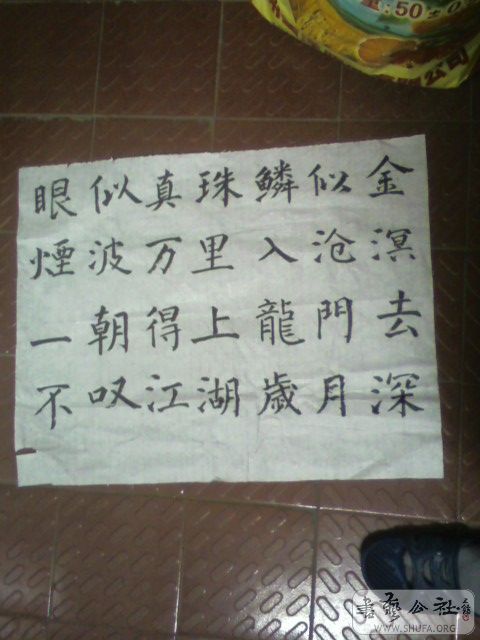 :50±0
公司
眼似真珠鱗似金
煙波万里入沧溟
一朝得上龍門去
不叹江湖歲月深
書藝公社
WWW.SHUFA.ORG